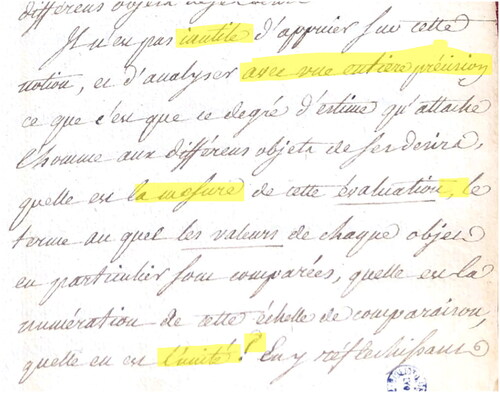 différens objets
Il n'en pas inutile d'appuier sur cette
notion, et d'analyser avec une entiere précision
ce que c'en que ce degré d'estime qu'attache
l'homme aux différens objets de ses desirs,
quelle est la mesure de cette évaluation, le
terme au quel les valeurs de chaque objet
en particulier sont comparées, quelle en la
numération de cette échelle de comparaison,
quelle en est l'unité? En y réflechissant